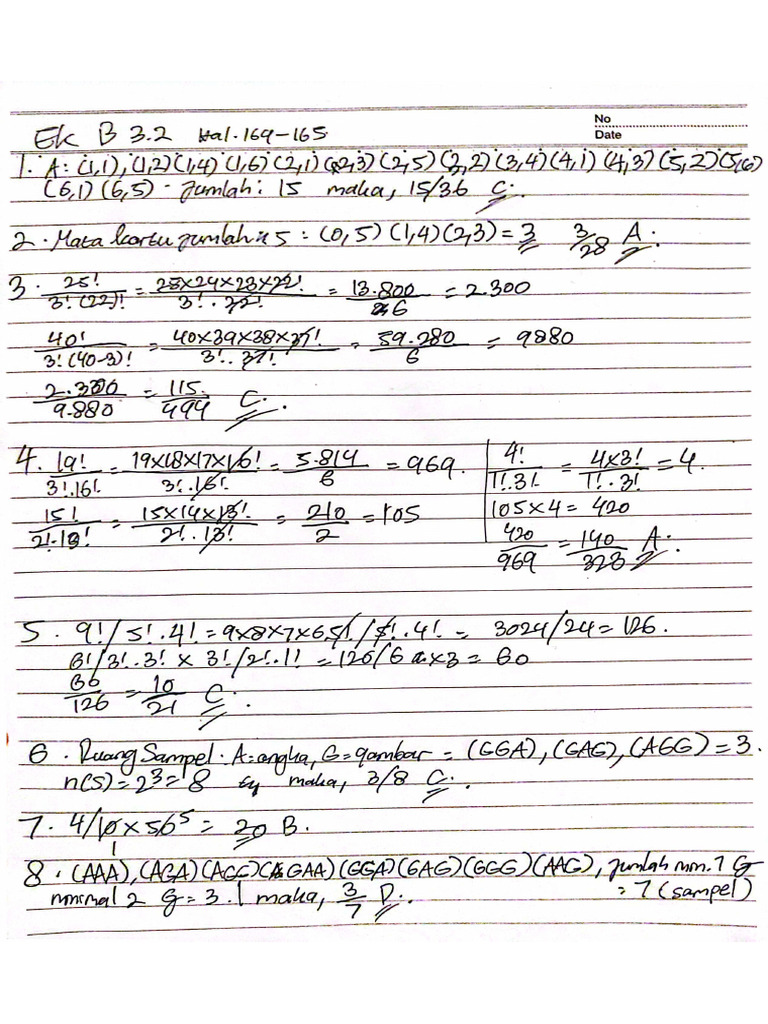 No
Date
EK B 3.2 Hal. 169-165
1. A: (1,1), (1,2) (1,4) (1,6) (2,1) (2,3) (2,5) (3,2) (3,4) (4,1) (4,3) (5,2) (5,6)
(6,1) (6,5) - Jumlah: 15 maka, 15/36 C.
2. Mata kartu jumlah: 5 : (0,5) (1,4) (2,3) = 3 3/28 A.
3. 25!/3!(22)! = 25x24x23x22!/3!.22! = 13.800/6 = 2.300
40!/3!(40-3)! = 40x39x38x37!/3!.37! = 59.280/6 = 9880
2.300/9.880 = 115/494 C.
4. 19!/3!.16! = 19x18x17x16!/3!.16! = 5.814/6 = 969.
15!/2!.13! = 15x14x13!/2!.13! = 210/2 = 105
4!/1!.3! = 4x3!/1!.3! = 4.
105x4 = 420
420/969 = 140/323 A.
5. 9!/5!.4! = 9x8x7x6.5!/5!.4! = 3024/24 = 126.
6!/3!.3! x 3!/2!.1! = 120/6 x3 = 60
60/126 = 10/21 C.
6. Ruang Sampel. A=angka, G=gambar = (GGA), (GAG), (AGG) = 3.
n(S) = 2³ = 8 maka, 3/8 C.
7. 4/10 x 50 5 = 20 B.
1
8. (AAA), (AGA) (AGG) (GAA) (GGA) (GAG) (GGG) (AAG), jumlah min. 1 G
minimal 2 G = 3. maka, 3/7 D. = 7 (sampel)